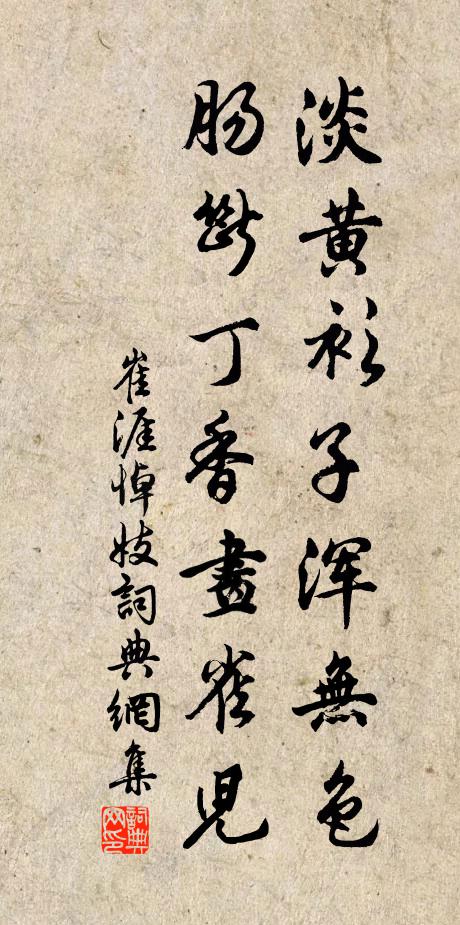 淡黄衫子浑無色
肠斷丁香畫雀兒
崔涯悼妓詞典網集
詞典网印